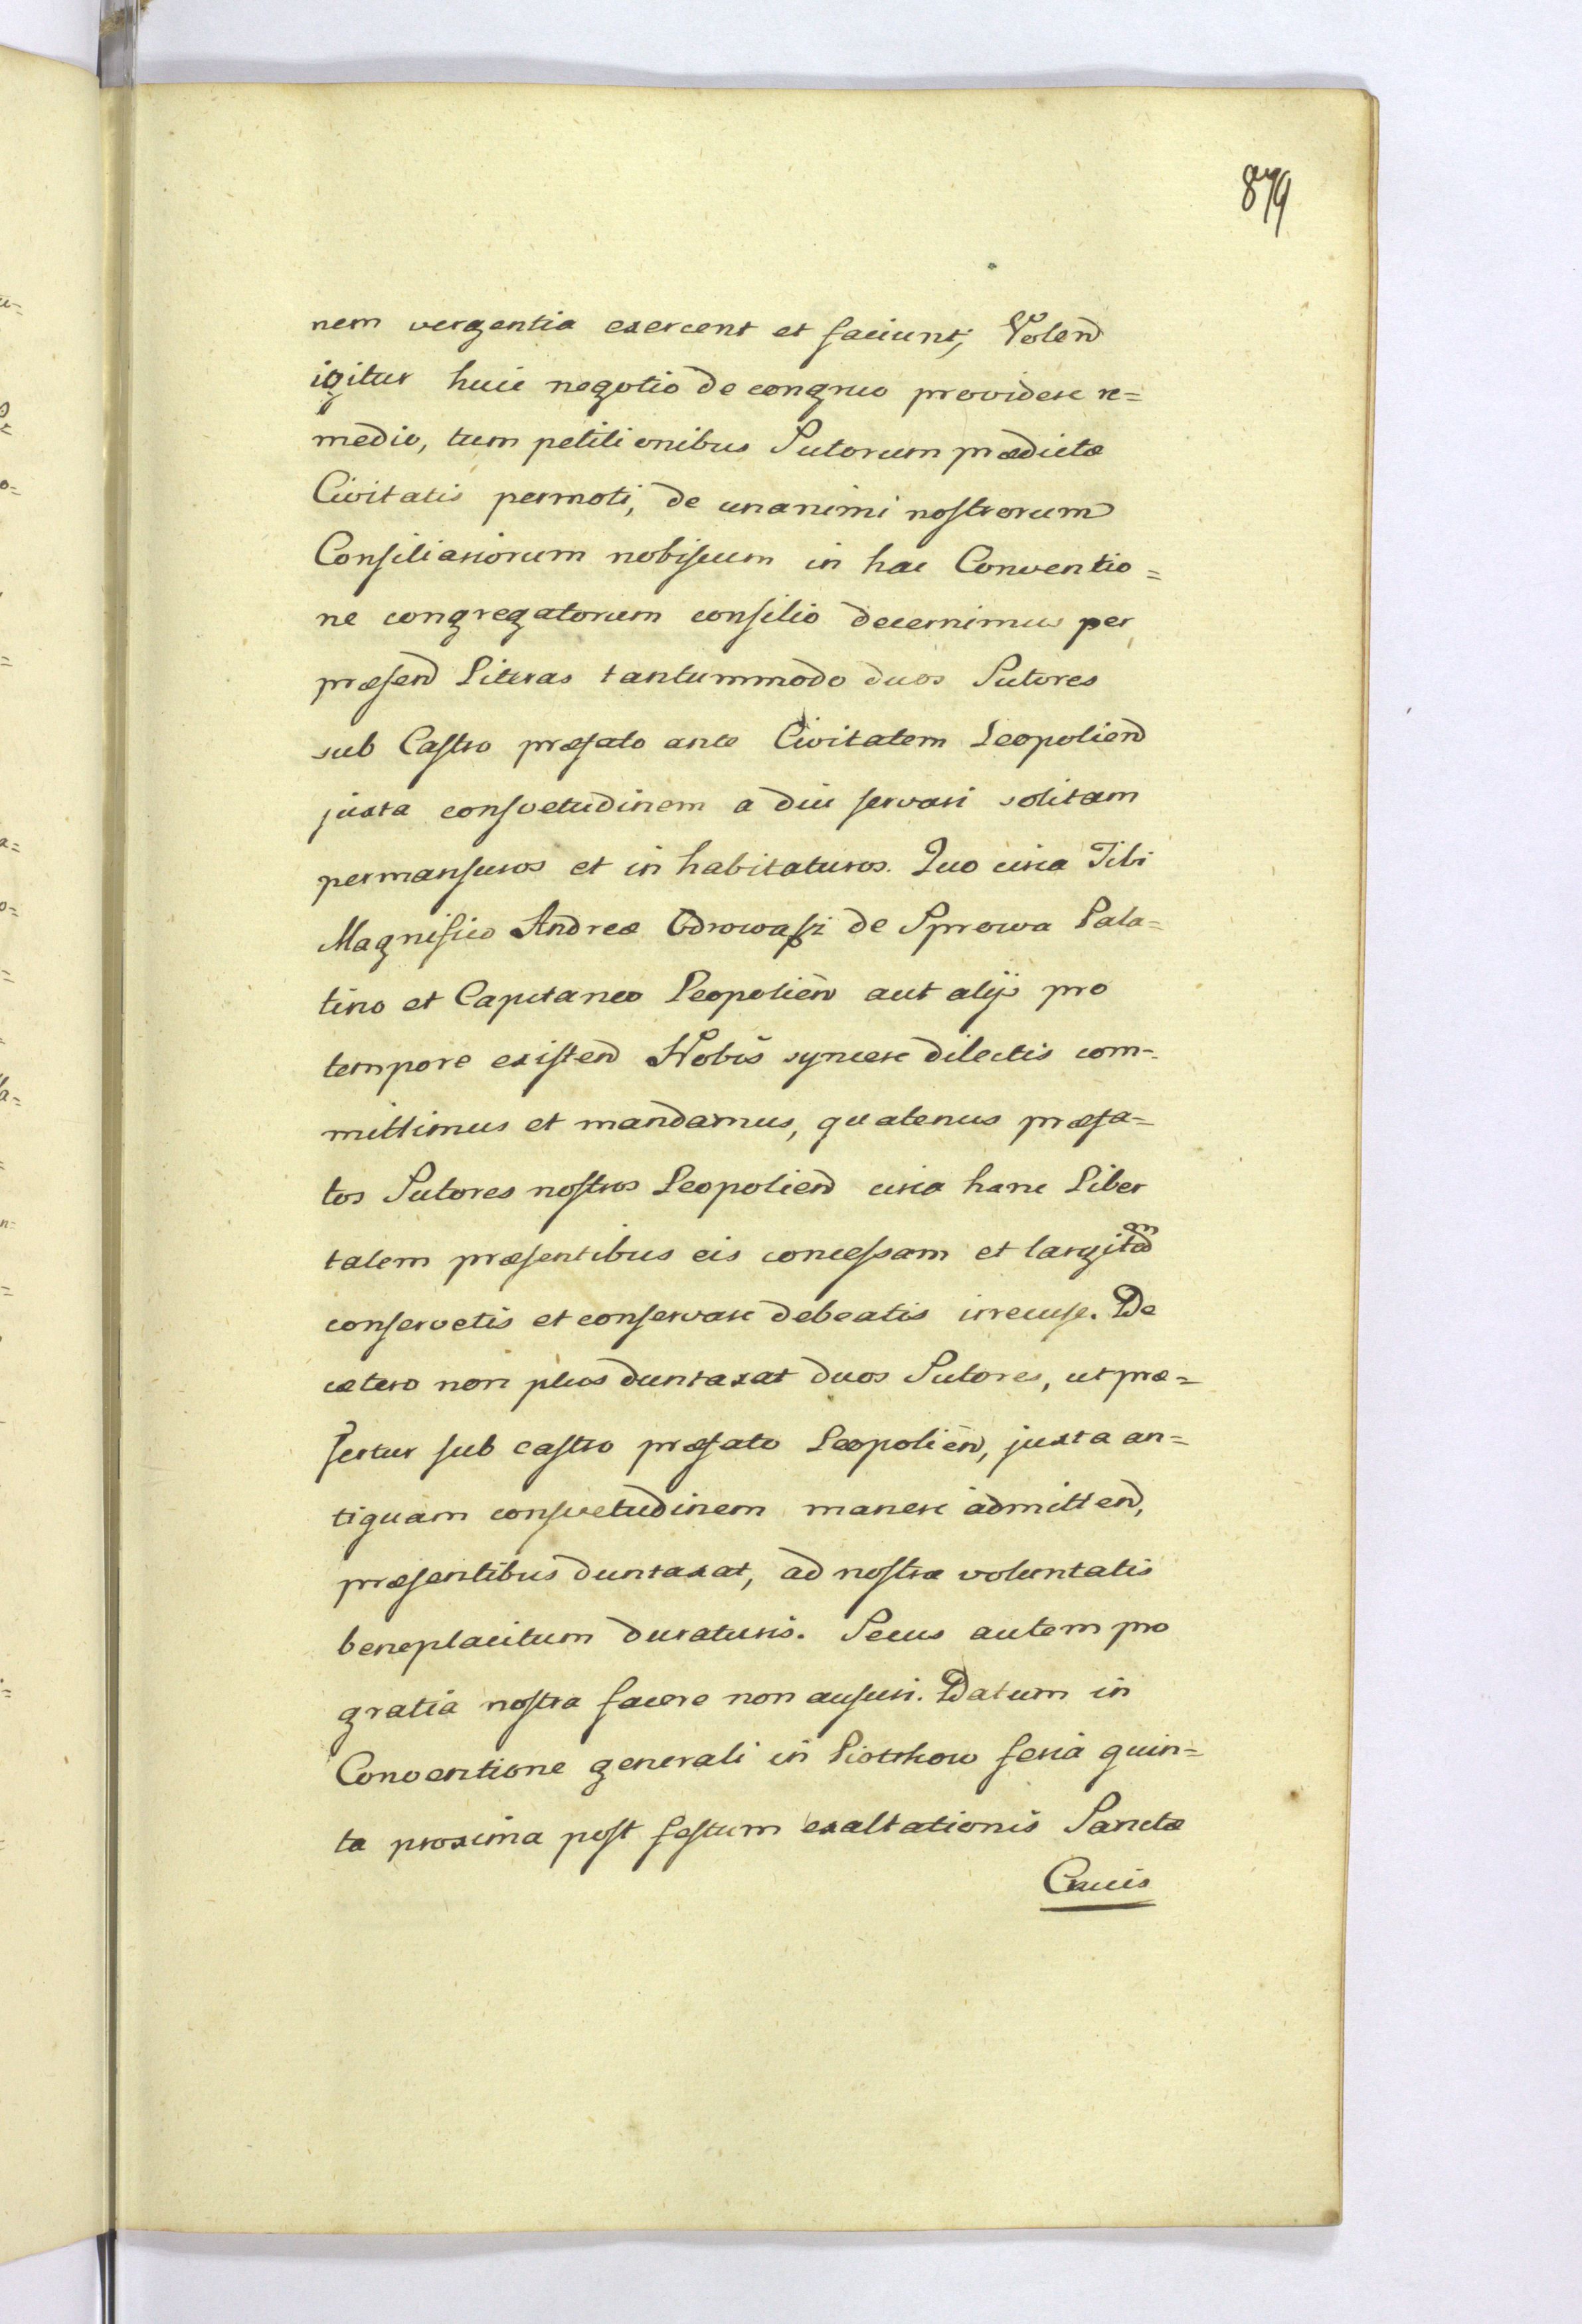 879
nem vergentia exercent et faciunt; Volend
igitur huic negotio de congruo providere re=
medio, tum petitionibus Sutorum prædictæ
Civitatis permoti, de unanimi nostrorum
Consiliariorum nobiscum in hac Conventio=
ne congregatorum consilio decernimus per
præsend Literas tantummodo duos Sutores
sub Castro præfato ante Civitatem Leopoliend
juxta consvetudinem a diu servari solitam
permansuros et in habitaturos. Quo circa Tibi
Magnifico Andreæ Odrowąsz de Sprowa Pala=
tino et Capitaneo Leopolien aut alijs pro
tempore existend Nobis syncere dilectis com=
mittimus et mandamus, quatenus præfa=
tos Sutores nostros Leopoliend circa hanc Liber
tatem præsentibus eis concessam et largitam
conservetis et conservare debeatis irrecuse. De
cætero non plus duntaxat duos Sutores, ut præ=
fertur sub castro præfato Leopolien, juxta an=
tiquam consvetudinem manere admittend,
præsentibus duntaxat, ad nostræ voluntatis
beneplacitum duraturis. Secus autem pro
gratia nostra facere non ausuri. Datum in
Conventione generali in Piotrkow feria quin=
ta proxima post festum exaltationis Sanctæ
Crucis